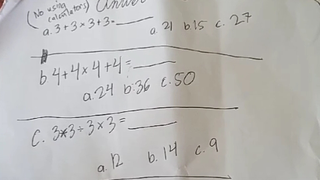 (No using calculators) Answer
a. 3+3×3+3=____ a. 21 b. 15 c. 27
b 4+4×4+4=____
a. 24 b. 36 c. 50
C. 3×3÷3×3=____
a. 12 b. 14 c. 9